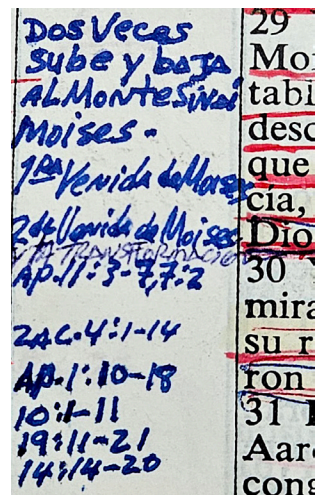 DOS Veces
Sube y baja
AL Monte Sinai
Moises -
1RA Venida de Moises
2da Venida de Moises
TRANSFORMACION
AP. 11:3-7, 7:2
ZAC. 4:1-14
AP. 1:10-18
10:1-11
19:11-21
14:14-20
29
Moi
tabl
desc
que
cía,
Dio
30
mira
su r
ron
31
Aar
cong